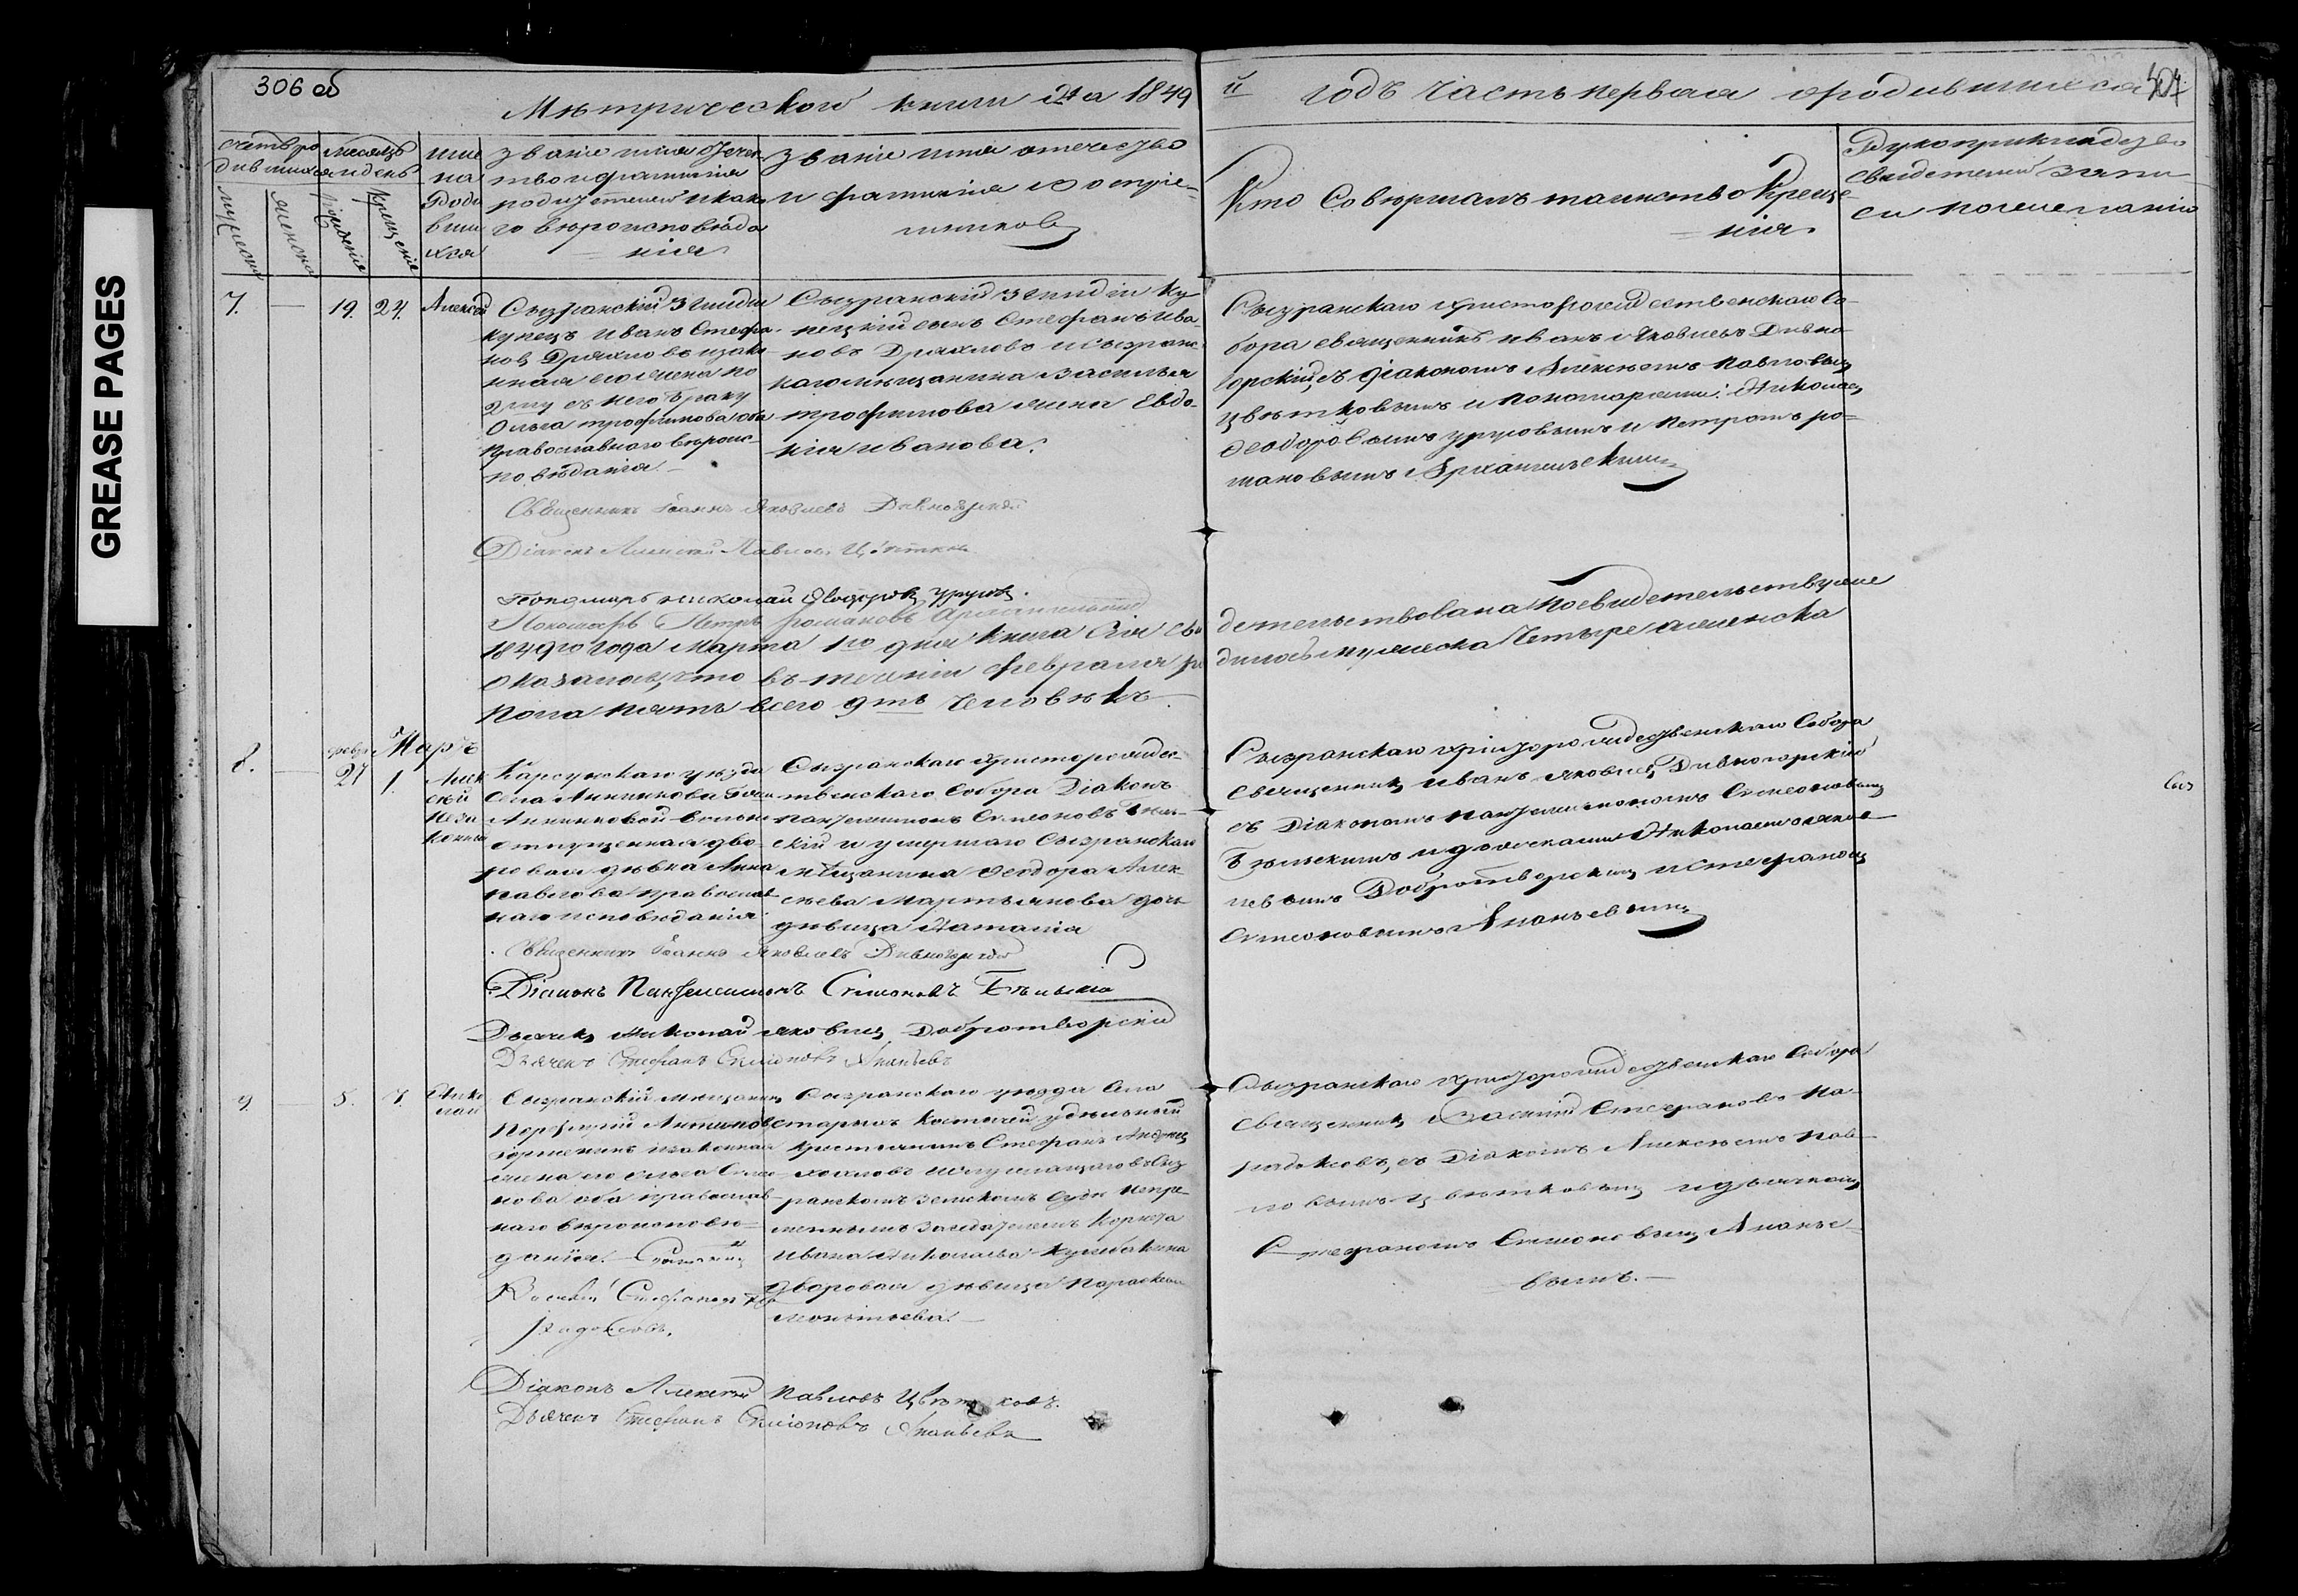 GREASE PAGES
306 об
Метрической книги на 1849
й годъ часть первая о родившихся
307
счетъ ро
дившихся
мужеска
женска
месяцъ
и день
рожденія
крещенія
име
на
Роди
вши
хся
званіе имя отече
тво и фамилія
родителей и како
го вероисповеда
нія
Званіе имя отечество
и фамилія воспріе-
мниковъ
Кто Совершалъ таинство Креще-
нія
Рукоприкладство
свидетелей запи
си по желанію
7.
19.
24.
Алексей
Сызранскій 3 гилдіи
купецъ Иванъ Стефа
новъ Дряхловъ и зако
нная его жена по
2му съ него браку
Ольга трофимова оба
православнаго вероис-
поведанія.
Сызранскій 3 гилдіи Ку
пецкій сынъ Стефанъ Ива-
новъ Дряхловъ и сызранс
каго мещанина Василья
трофимова жена Евдо-
кія иванова.
Сызранскаго христорождественскаго Со-
бора священникъ иванъ Яковлевъ Дивно-
горскій, съ діакономъ Алексеемъ Павловымъ
цветковымъ и пономарями: Николаем
Феодоровымъ и Петромъ ро-
мановымъ Архангельскимъ
Священникъ Іоаннъ Яковлевъ Дивногорскій
Діаконъ Алексей Павловъ Цветковъ
Пономарь николай Феодоровъ
Пономарь Петръ романовъ Архангельскій
1849го года Марта 1го дня книга Сія сви
детельствована по свидетельству же
оказалось, что въ теченіи февраля ро
дилось мужеска Четыре женска
пола пять всего 9ть Человекъ.
Мартъ
8.
февр
27
1.
Алек
сей
неза
конный
Карсунскаго уезда
Села Аннинкова Гжи
Аннинковой вольно
отпущенная дво-
ровая девка Анна
павлова православ
наго исповеданія
Сызранскаго Христорождес-
твенскаго Собора Діаконъ
пантелеимонъ Симеоновъ Бель-
скій и умершаго Сызранскаго
мещанина Феодора Алек-
сеева Мартьянова дочь
девица Наталія
Сызранскаго христорождественскаго Собора
священникъ иванъ яковлевъ Дивногорскій
съ Діакономъ пантелеимономъ Симеоновымъ
Бельскимъ и дьячками Николаемъ яков
левымъ Добротворскимъ и Стефаномъ
Симеоновымъ Ананьевымъ
Священникъ Іоаннъ Яковлевъ Дивногорскій
Діаконъ Пантелеимонъ Симеоновъ Бельскій
Дьячекъ Николай яковлевъ Добротворскій
Дьячекъ Стефанъ Симеоновъ Ананьевъ
9.
5.
7.
Нико
лай
Сызранскій мещанинъ
Порфирій Антиповъ
и законная
жена его
нова оба православ-
наго вероисповѣ-
данія.
Сызранскаго уезда Села
старыхъ Костычей удельный
крестьянинъ Стефанъ Андреевъ
и служащаго въ Сыз
ранскомъ земскомъ суде непре-
меннымъ заседателемъ Корнета
ивана Николаева
дворовая девица параскева
леонтьева.
Сызранскаго христорождественскаго Собора
священникъ Василій Стефановъ Па-
радоксовъ, съ Діакономъ Алексеемъ пав-
ловымъ цветковымъ и дьячкомъ
Стефаномъ Симеоновымъ Ананье-
вымъ.
Священникъ
Василій Стефановъ Па
радоксовъ.
Діаконъ Алексей Павловъ Цветковъ.
Дьячекъ Стефанъ Симеоновъ Ананьевъ